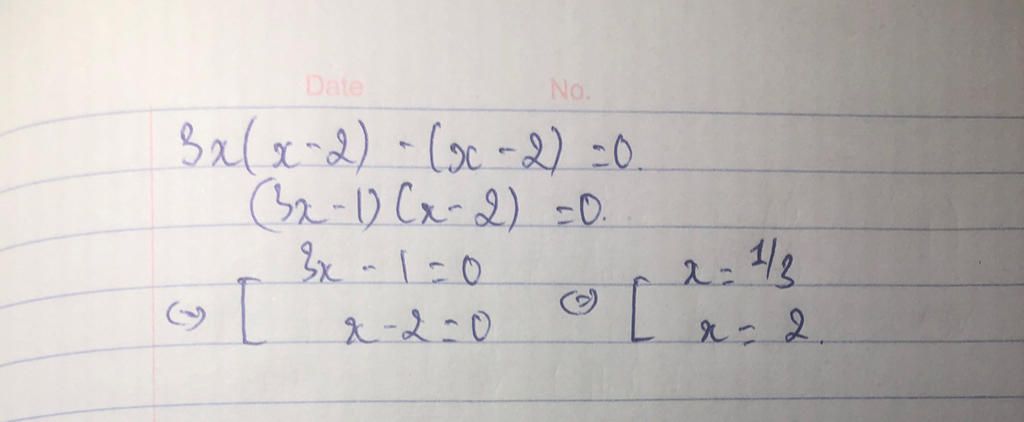 Date No.
3x(x-2) - (x-2) = 0.
(3x-1)(x-2) = 0.
⇔ [ 3x - 1 = 0 ⇔ [ x = 1/3
x - 2 = 0 x = 2.